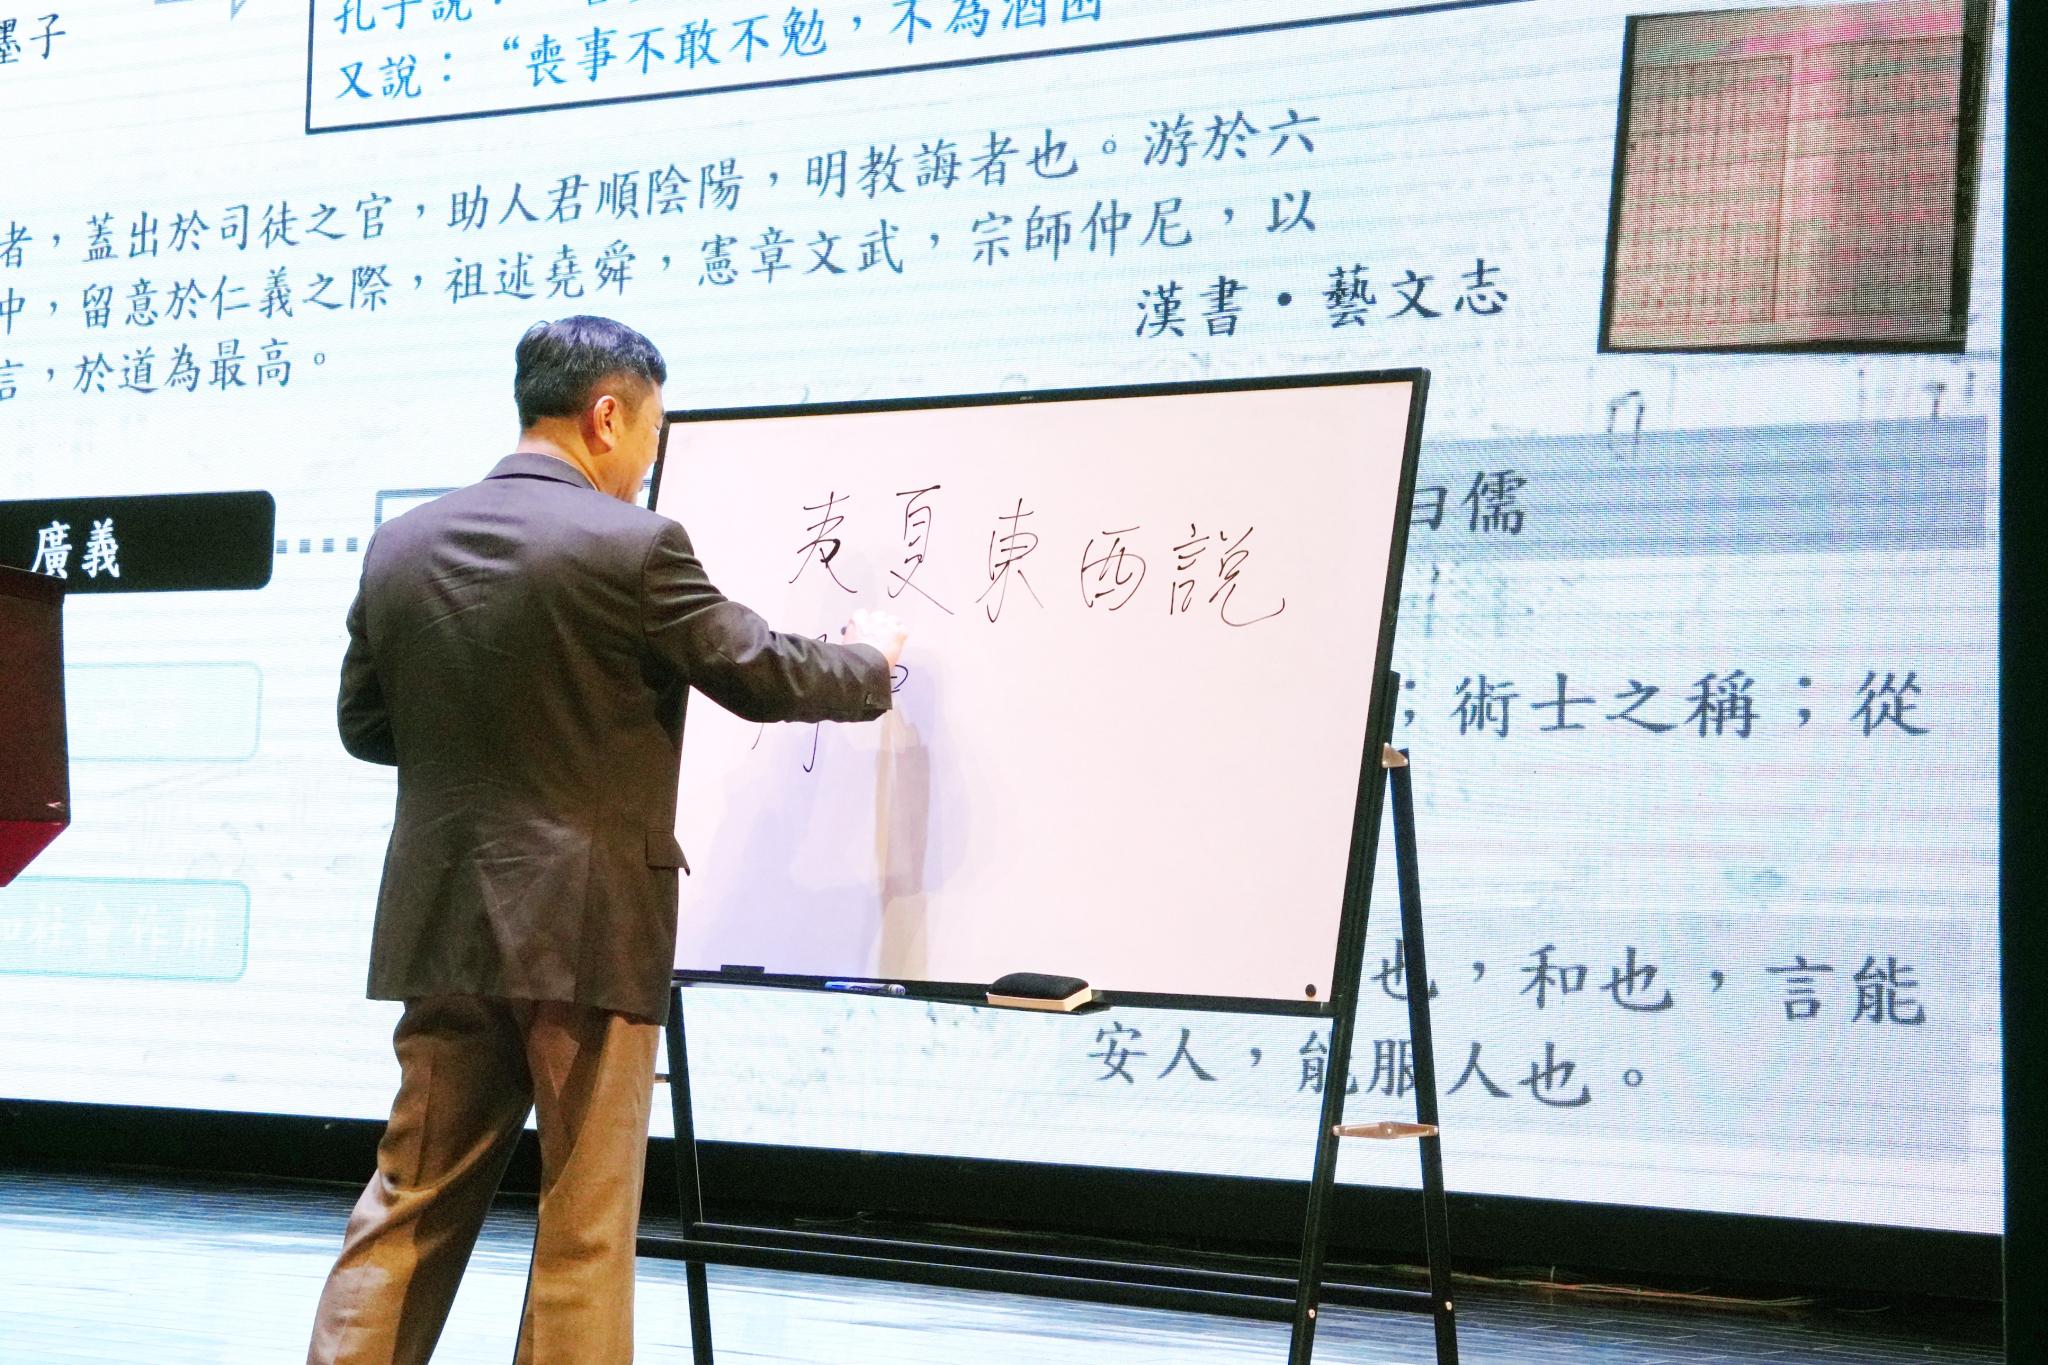 墨子
孔子說：
又說：“喪事不敢不勉，不為酒困
者，蓋出於司徒之官，助人君順陰陽，明教誨者也。游於六
中，留意於仁義之際，祖述堯舜，憲章文武，宗師仲尼，以
言，於道為最高。
漢書·藝文志
廣義
曰儒
夷夏東西說
；術士之稱；從
和社會作用
也，和也，言能
安人，能服人也。